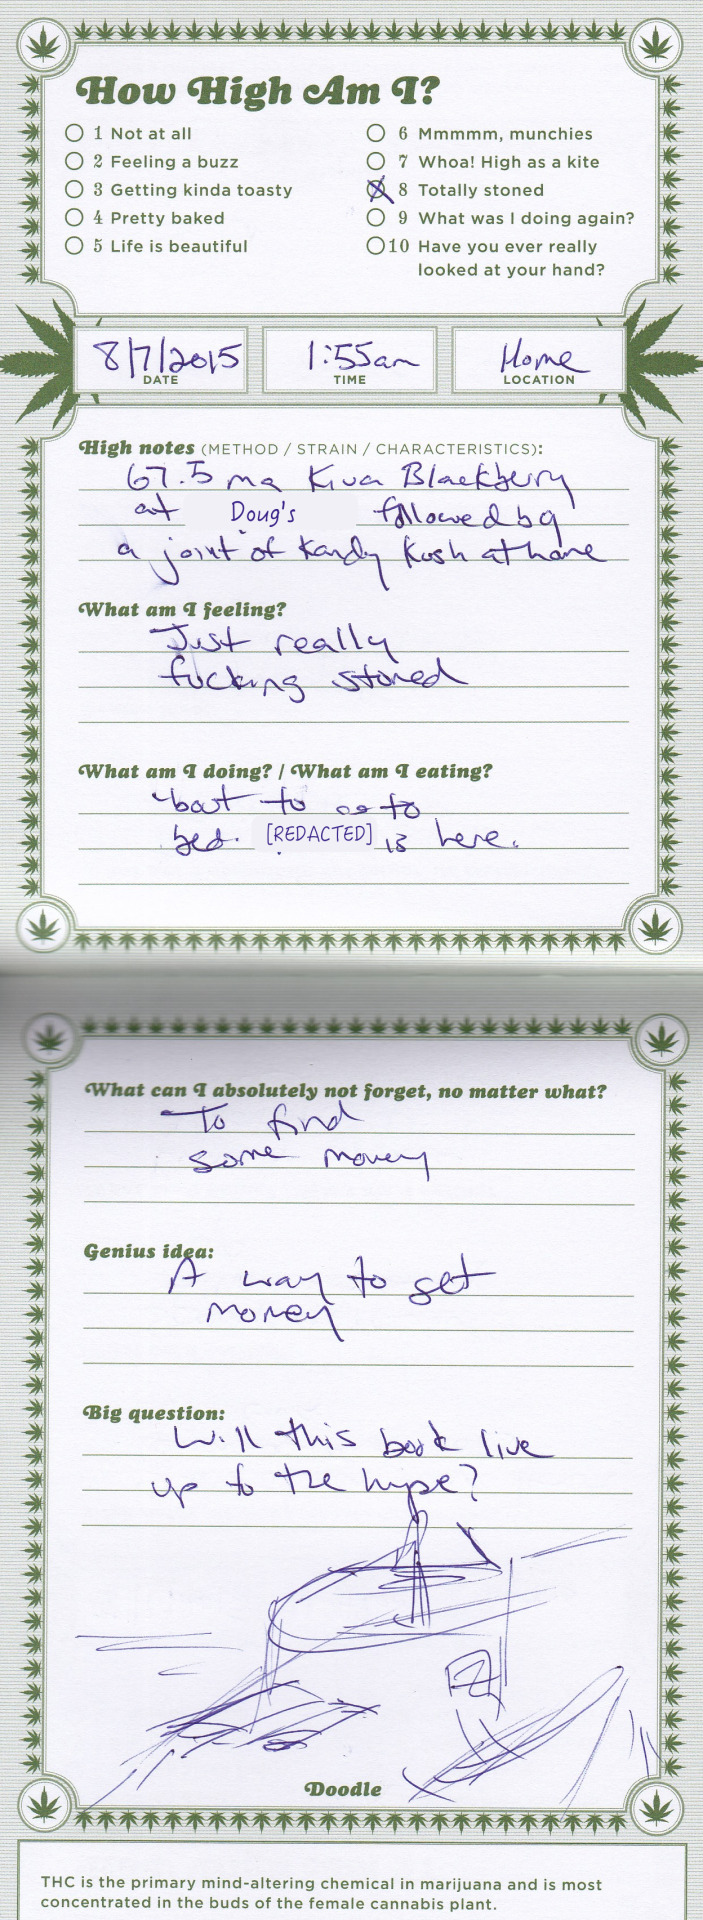 How High Am I?
1 Not at all
2 Feeling a buzz
3 Getting kinda toasty
4 Pretty baked
5 Life is beautiful
6 Mmmmm, munchies
7 Whoa! High as a kite
8 Totally stoned
9 What was I doing again?
10 Have you ever really
looked at your hand?
8/7/2015
DATE
1:55am
TIME
Home
LOCATION
High notes (METHOD / STRAIN / CHARACTERISTICS):
67.5 mg Kiva Blackberry
at Doug's followed by
a joint of Kandy Kush at home
What am I feeling?
Just really
fucking stoned
What am I doing? / What am I eating?
'bout to go to
bed. [REDACTED] is here.
What can I absolutely not forget, no matter what?
To find
some money
Genius idea:
A way to get
money
Big question:
Will this book live
up to the hype?
Doodle
THC is the primary mind-altering chemical in marijuana and is most
concentrated in the buds of the female cannabis plant.